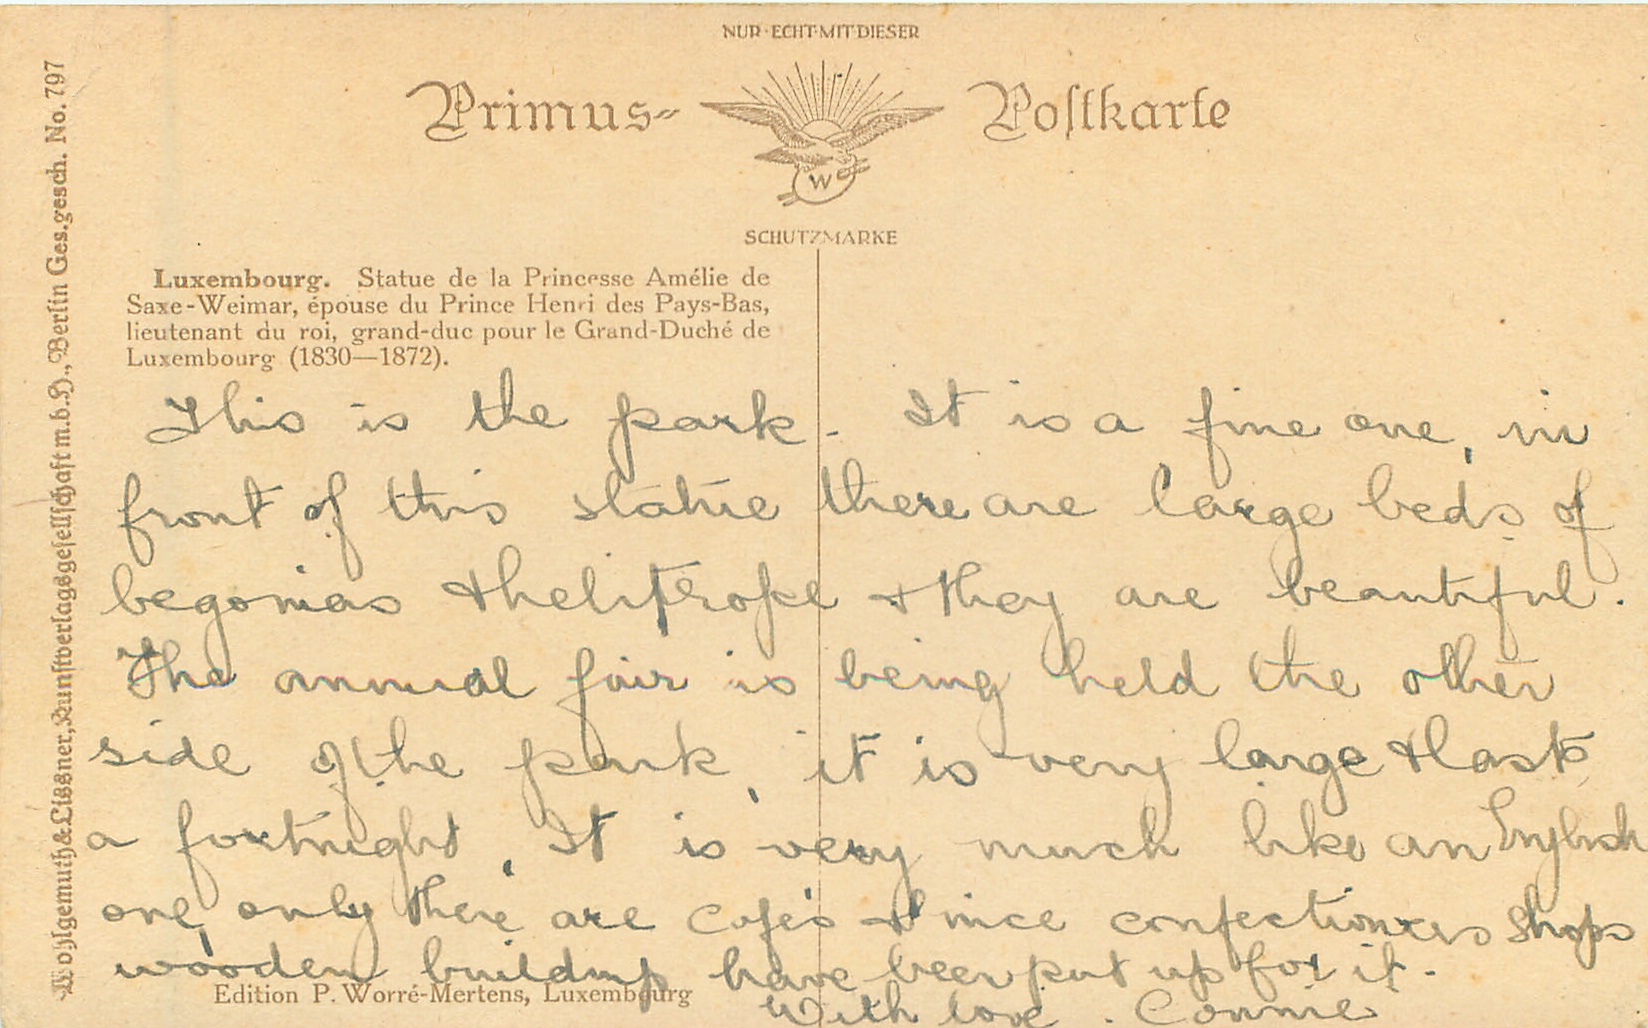 NUR·ECHT·MIT·DIESER
Primus- Poſtkarte
W
SCHUTZMARKE
Wohlgemuth & Lissner, Kunſtverlagsgeſellſchaft m.b.H., Berlin Ges.gesch. No. 797
Luxembourg. Statue de la Princesse Amélie de
Saxe-Weimar, épouse du Prince Henri des Pays-Bas,
lieutenant du roi, grand-duc pour le Grand-Duché de
Luxembourg (1830—1872).
This is the park. It is a fine one, in
front of this statue there are large beds of
begonias & heliotrope & they are beautiful.
The annual fair is being held the other
side of the park, it is very large & lasts
a fortnight. It is very much like an English
one, only there are cafés & nice confectioners shops
wooden buildings have been put up for it.
With love. Connie
Edition P. Worré-Mertens, Luxembourg